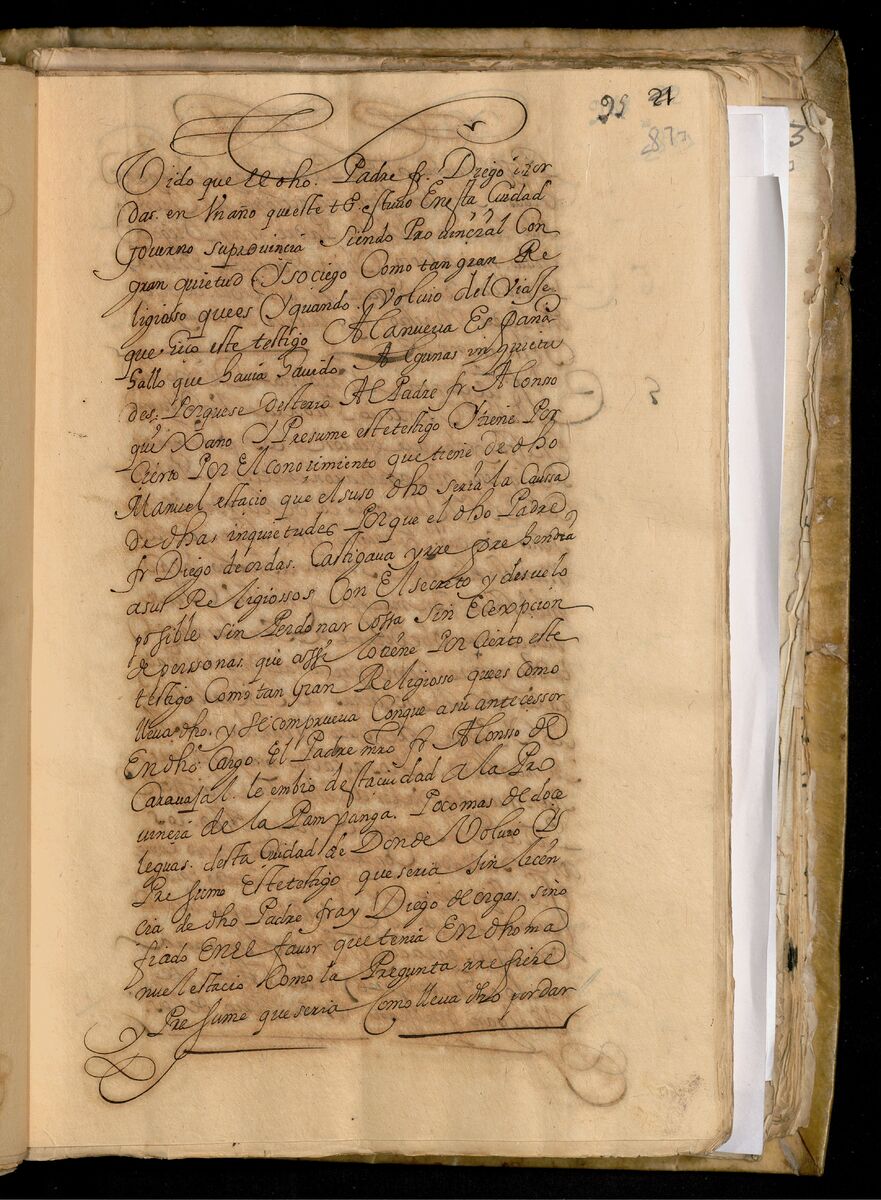 95 21
877
Vido que el dho. Padre fr. Diego de or
das. en Vn año que este tGº. estubo En esta Ciudad
Governo su provincia Siendo Provinçial Con
gran quietud Y sociego Como tan gran Re
ligioso que es Y quando Volvio del Viaje
que hiço este testigo A la nueva Es Paña
hallo que havia havido Algunas inquietu
des; Porque se desterro Al Padre fr Alonso
Y Presume este testigo Y tiene Por
Cierto Por El conocimiento que tiene de dho
Manuel estacio que el suso dho seria la Caussa
de dhas inquietudes Porque el dho Padre
fr Diego de ordas. Castigava y rre prehendia
a sus Religiossos Con El secreto y desuelo
possible sin Perdonar Cossa sin Ecepçion
de perssonas. que assi lo tiene Por Cierto este
testigo Como tan Gran Religiosso que es como
lleva dho. y se comprueva Con que a su antecessor
En dho Cargo. El Padre mrō fr Alonso de
Caravajal. le embio desta ciudad a la Pro
vincia de la Pampanga. Poco mas de doce
leguas. desta Ciudad de Donde Volvio Y
Presume Este testigo que seria sin licen
cia de dho Padre fray Diego de orgas. sino
fiado En el favor que tenia En dho ma
nuel estacio Como la Pregunta rrefiere
Y Presume que seria Como lleva dho por dar